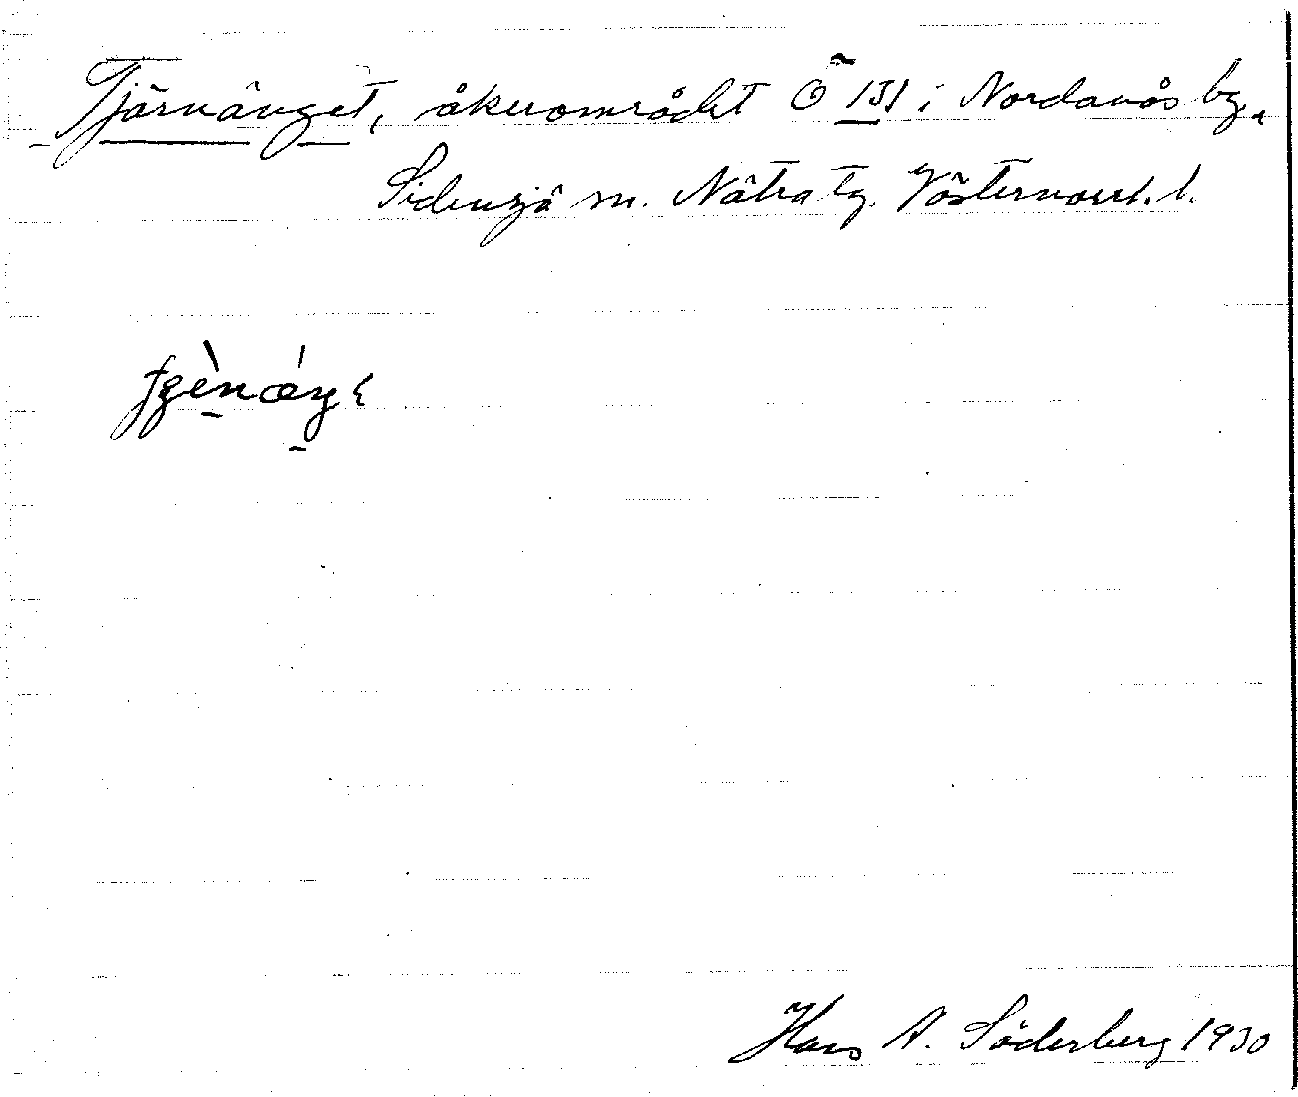 Tjärnänget, åkerområdet Ö 151 i Nordanås by,
Sidensjö sn. Nätra tg. Västernorrl. l.
Hans A. Söderberg 1930